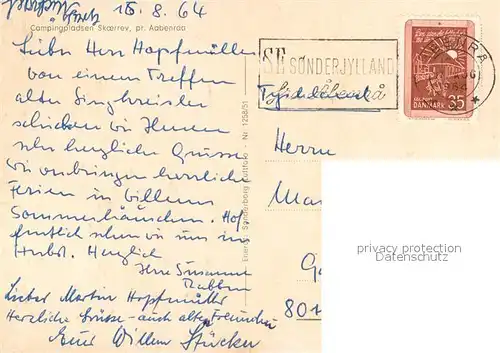 15.8.64
Campingpladsen Skærrev, pr. Aabenraa
Lieber Herr Hopfmüller
von einem Treffen
alter Singkreisler
schicken wir Ihnen
sehr herzliche Grüsse
Wir verbringen herrliche
Ferien in
Sommerhäuschen. Hof-
fentlich sehen wir uns im
Herbst. Herzlich
Ihre Susanne
Lieber Martin Hopfmüller
Herzliche Grüsse - auch alte Freunde
Euer Willem Stücker
Eneret: Sønderborg Luftfoto - Nr. 1258/51
SE SØNDERJYLLAND
DANMARK 35
Herrn
Mar
801
privacy protection
Datenschutz